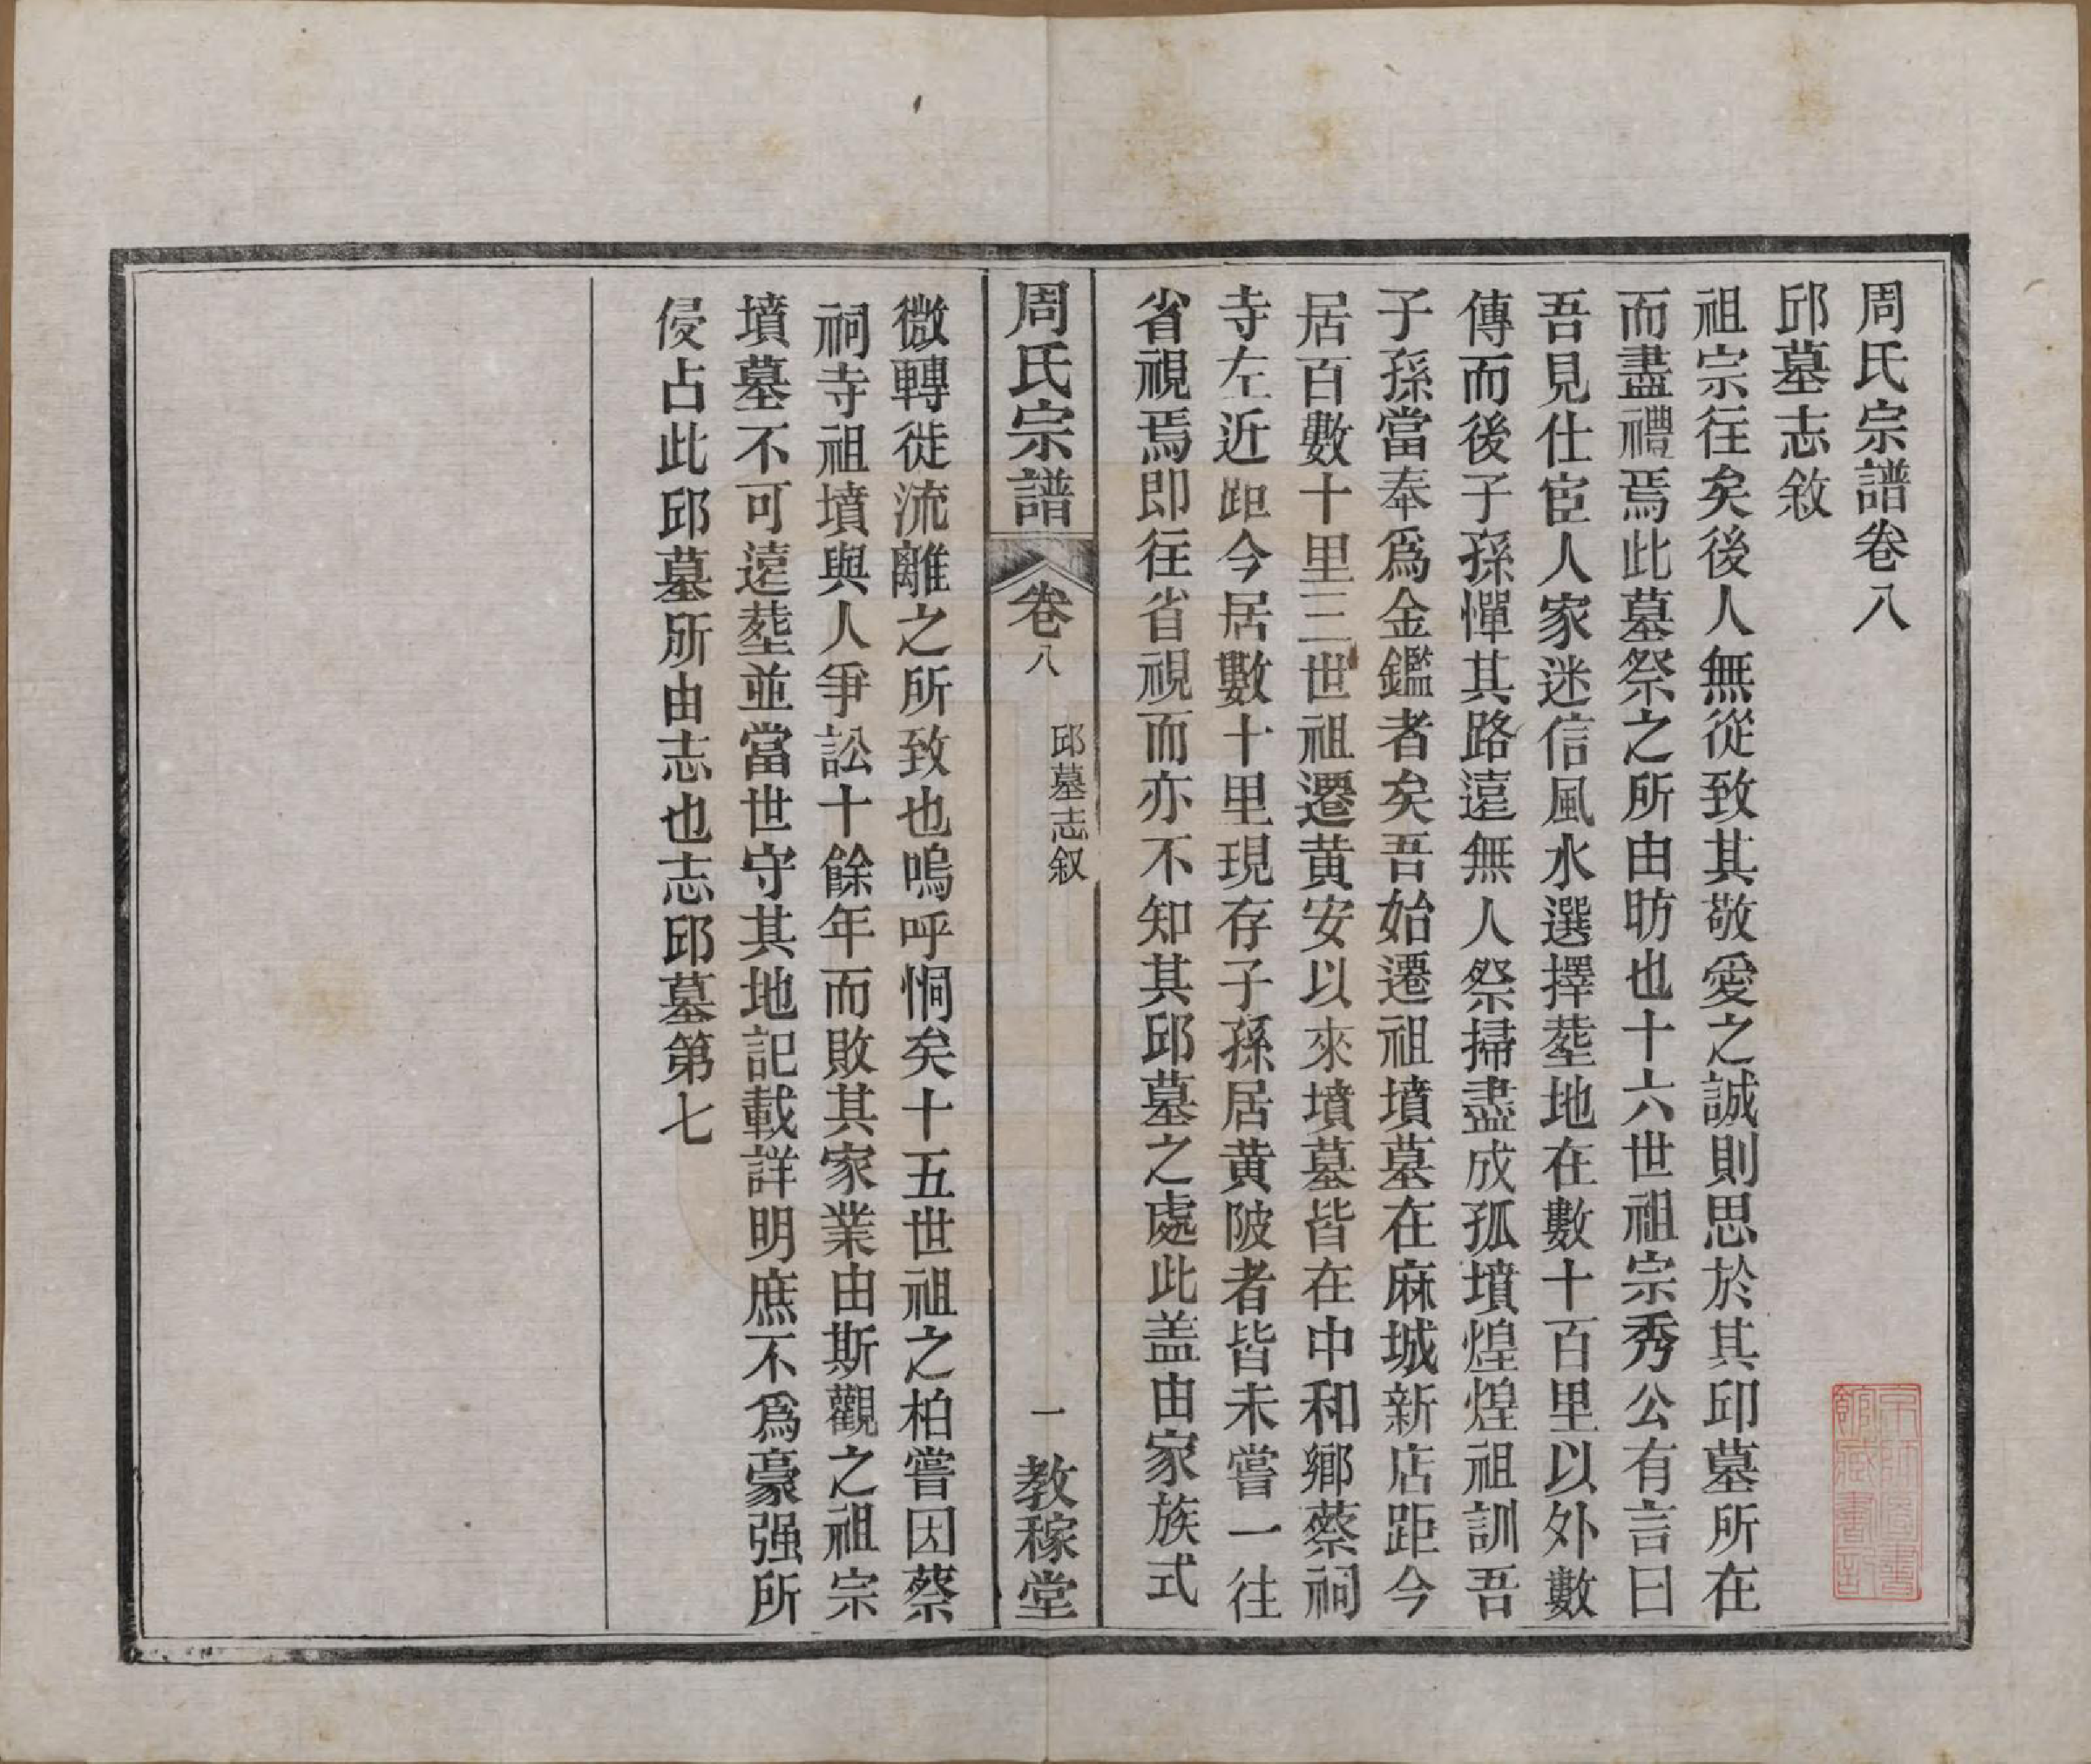 周氏宗譜卷八
邱墓志敘
祖宗往矣後人無從致其敬愛之誠則思於其邱墓所在
而盡禮焉此墓祭之所由昉也十六世祖宗秀公有言曰
吾見仕宦人家迷信風水選擇塟地在數十百里以外數
傳而後子孫憚其路遠無人祭掃盡成孤墳煌煌祖訓吾
子孫當奉爲金鑑者矣吾始遷祖墳墓在麻城新店距今
居百數十里三世祖遷黄安以來墳墓皆在中和鄉蔡祠
寺左近距今居數十里現存子孫居黄陂者皆未嘗一往
省視焉即往省視而亦不知其邱墓之處此盖由家族式
周氏宗譜
卷八
邱墓志叙
一
教稼堂
微轉徙流離之所致也嗚呼恫矣十五世祖之柏嘗因蔡
祠寺祖墳與人爭訟十餘年而敗其家業由斯觀之祖宗
墳墓不可遠塟並當世守其地記載詳明庶不爲豪强所
侵占此邱墓所由志也志邱墓第七
京師圖書
館藏書記